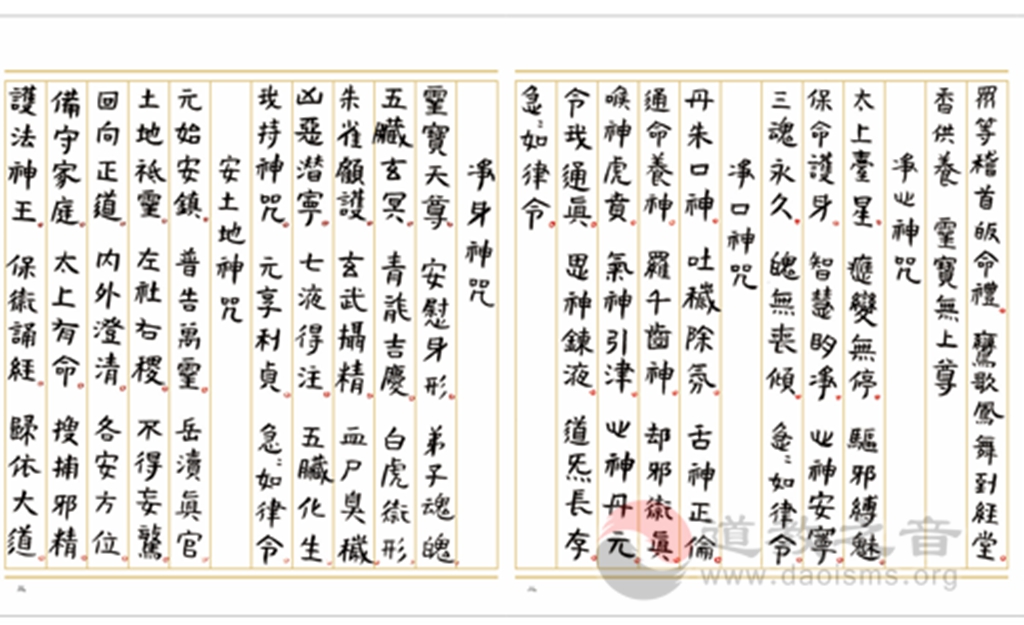 眾等稽首皈命禮 鸞歌鳳舞到經堂
香供養 靈寶無上尊
净心神咒
太上臺星 應變無停 驅邪縛魅
保命護身 智慧明净 心神安寧
三魂永久 魄無丧傾 急〻如律令
净口神咒
丹朱口神 吐穢除氛 舌神正倫
通命養神 羅千齒神 却邪衛眞
喉神虎賁 氣神引津 心神丹元
令我通眞 思神鍊液 道炁長存
急〻如律令
净身神咒
靈寶天尊 安慰身形 弟子魂魄
五臟玄冥 青龍吉慶 白虎衛形
朱雀顧護 玄武攝精 血尸臭穢
凶惡潛寧 七液得注 五臟化生
我持神咒 元享利貞 急〻如律令
安土地神咒
元始安鎮 普告萬靈 岳瀆眞官
土地祇靈 左社右稷 不得妄驚
回向正道 内外澄清 各安方位
備守家庭 太上有命 搜捕邪精
護法神王 保衛誦經 歸依大道
道教之音
www.daoisms.org